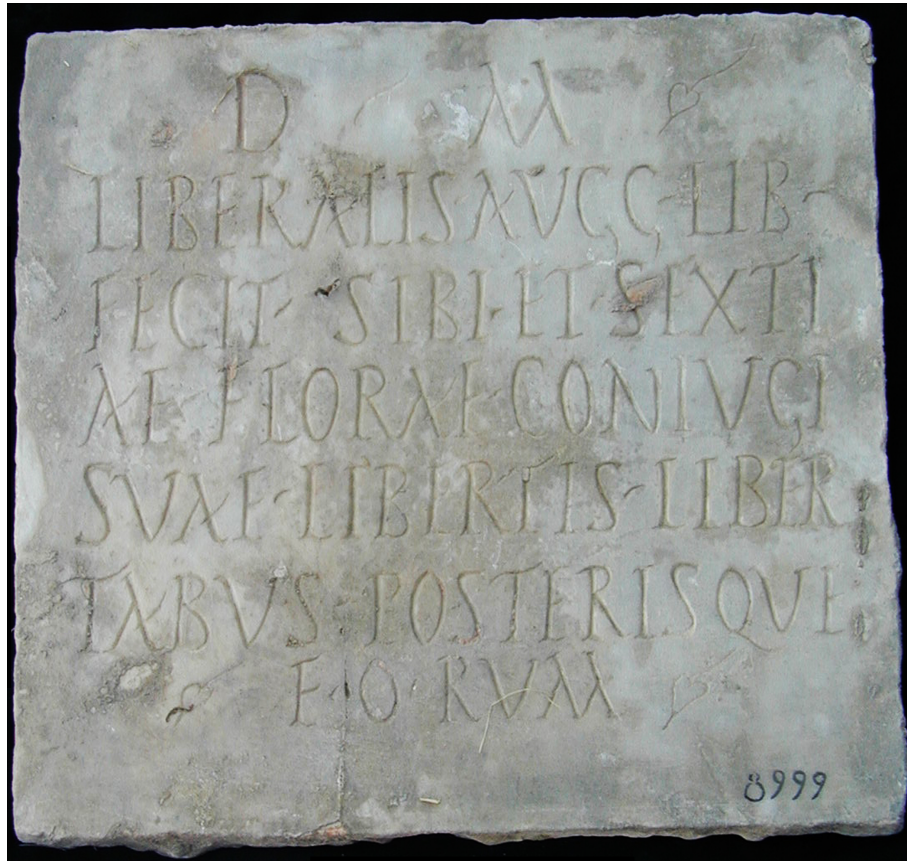 D M
LIBERALIS·AVGG·LIB·
FECIT· SIBI·ET·SEXTI
AE·FLORAE·CONIVGI
SVAE·LIBERTIS·LIBER
TABVS·POSTERISQVE
E·O·RVM
8999